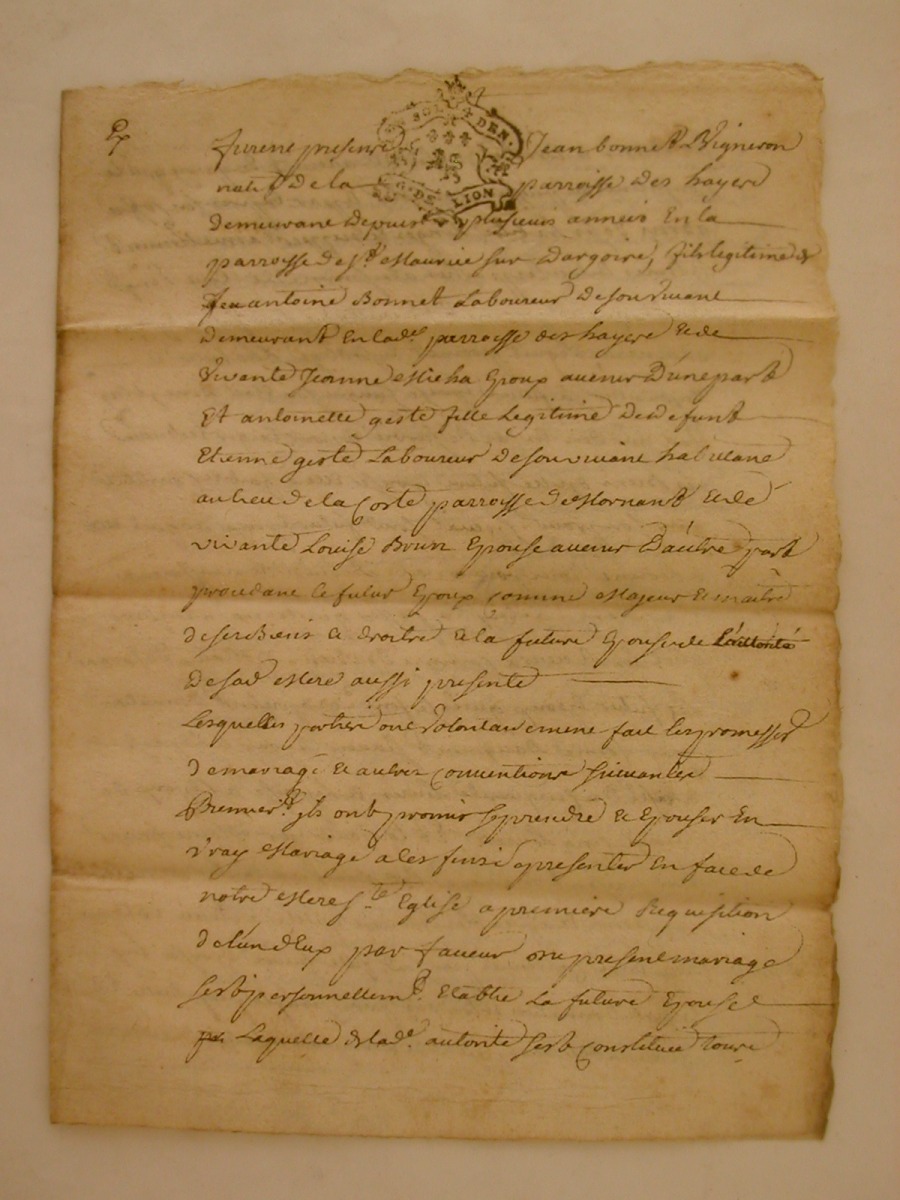 furent presents Jean bonnet Vigneron
natif de la parroisse des hayes
SOLS DEN.
G. DE LION
demeurant depuis plusieurs années En la
parroisse de St. Maurice sur Dargoire, fils legitime de
feu antoine Bonnet Laboureur de son vivant
demeurant En lade. parroisse des hayes et de
Vivante Jeanne Epoux avenir D'une part
Et antoinette geste fille Legitime de defunt
Etienne geste Laboureur de son vivant habitant
au lieu de la Coste parroisse de Mornant et de
vivante Louise Brun Epouse avenir D'autre part
procedant le futur Epoux comme Majeur et maitre
de ses Biens et droits et la future Epouse de L'autorité
de sad. Mere aussi presente
Lesquelles parties ont Volontairement fait les promesses
de mariage et autres conventions suivantes
Premiert. ils ont promis se prendre et Epouser En
vray Mariage a ces fins se presenter En face de
notre Mere Ste. Eglise a premiere Requisition
de l'un d'Eux par faveur du present mariage
s'est personnellemt. Etablie La future Epouse
Laquelle de lade. autorité s'est Constituée tous